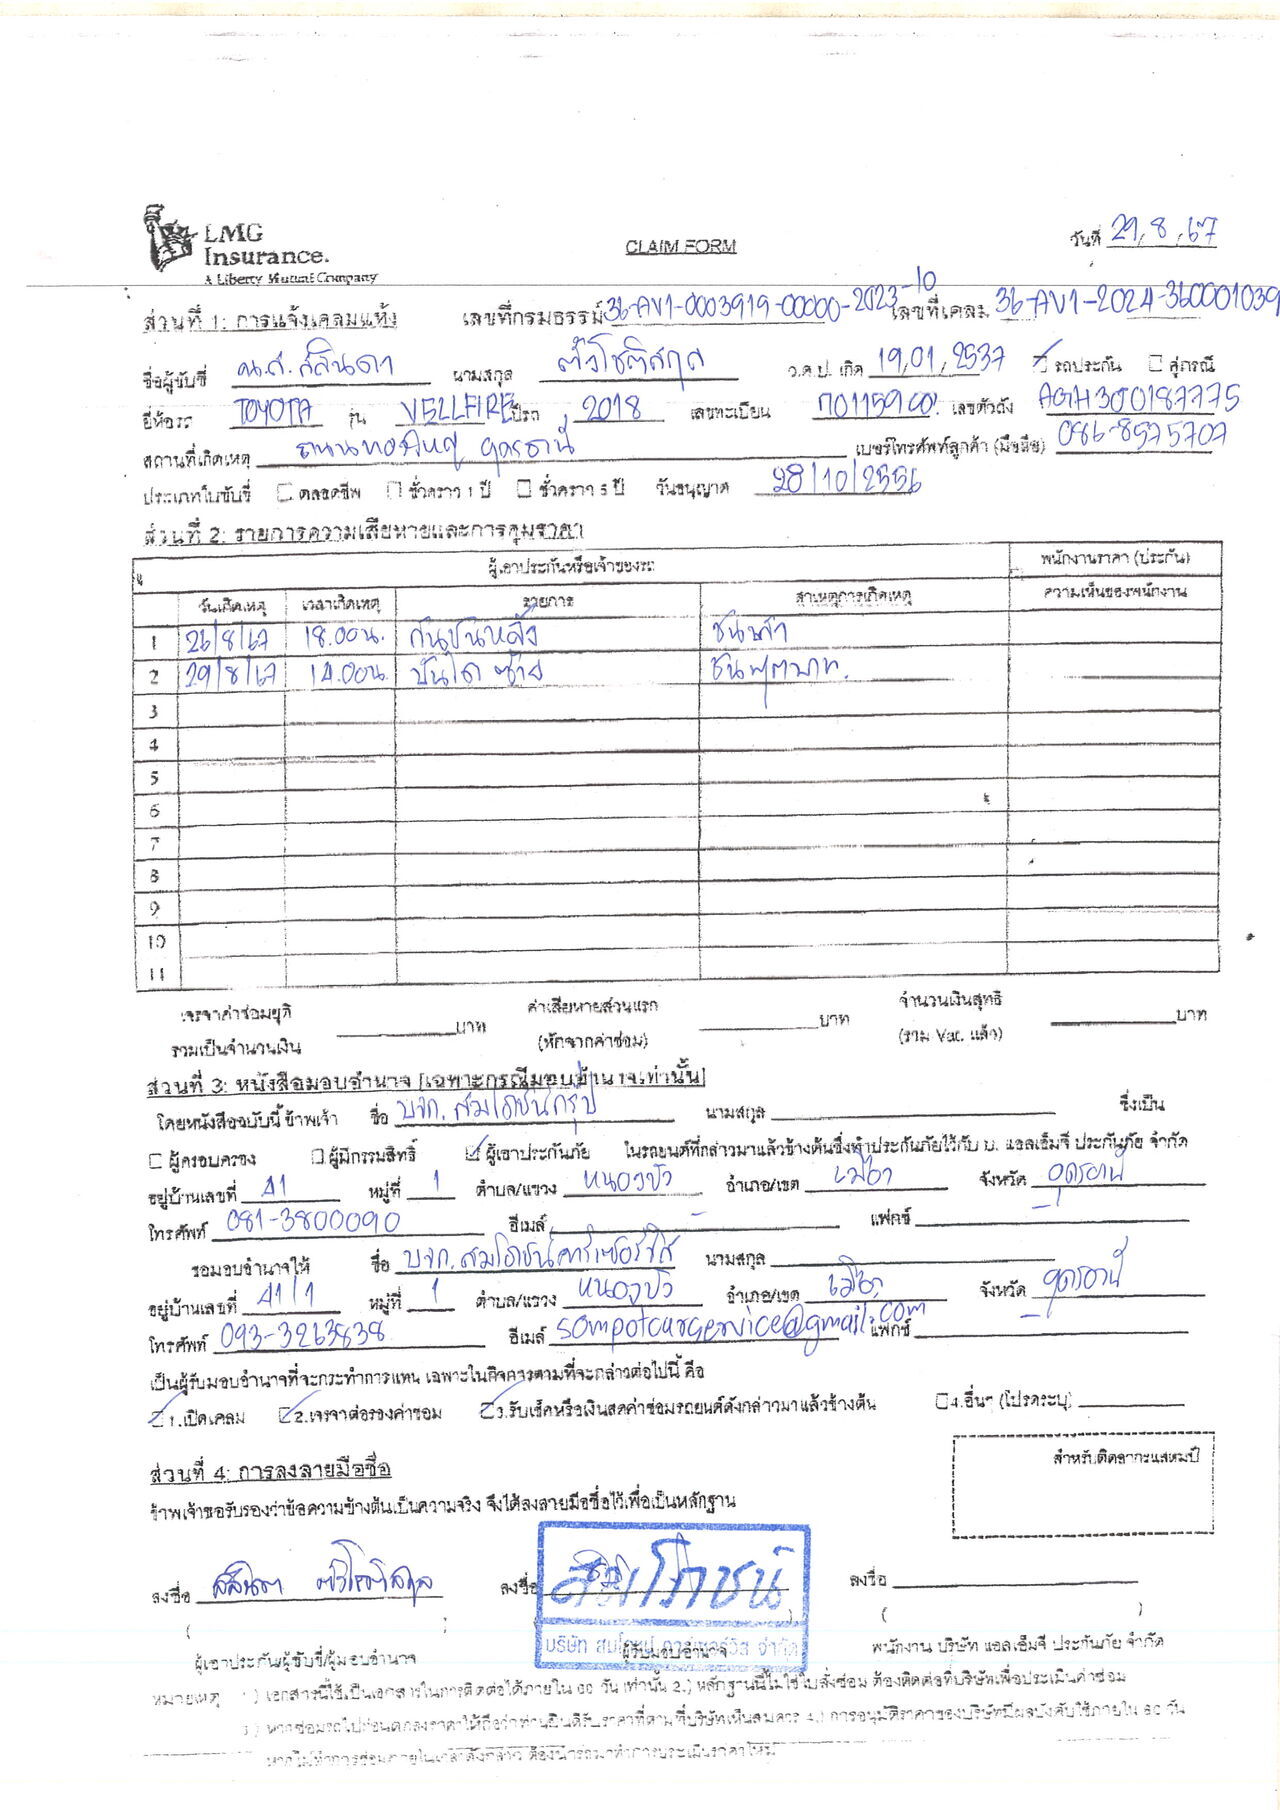 LMG
Insurance.
A Liberty Mutual Company
CLAIM FORM
วันที่ 29/8/67
ส่วนที่ 1: การแจ้งเคลมแห้ง เลขที่กรมธรรม์ 36-AV1-0003919-00000-2023-10 เลขที่เคลม 36-AV1-2024-360001039
ชื่อผู้ขับขี่ น.ส. สลินดา นามสกุล ตั้งโชติสกุล ว.ด.ป. เกิด 19/01/2537 รถประกัน คู่กรณี
ยี่ห้อรถ TOYOTA รุ่น VELLFIRE ปีรถ 2018 เลขทะเบียน เลขตัวถัง AGH300187775
สถานที่เกิดเหตุ ถนนทองใหญ่ อุดรธานี เบอร์โทรศัพท์ลูกค้า (มือถือ) 086-8575707
ประเภทใบขับขี่ ตลอดชีพ ชั่วคราว 1 ปี ชั่วคราว 5 ปี วันอนุญาต 28/10/2556
ส่วนที่ 2: รายการความเสียหายและการคุมราคา
ผู้เอาประกันหรือเจ้าของรถ พนักงานราคา (ประกัน)
วันเกิดเหตุ เวลาเกิดเหตุ รายการ สาเหตุการเกิดเหตุ ความเห็นของพนักงาน
1 26/8/67 18.00น. กันชนหลัง ชนเสา
2 29/8/67 14.00น. บันได ซ้าย ชนฟุตบาท.
3
4
5
6
7
8
9
10
11
เจรจาค่าซ่อมยุติ ค่าเสียหายส่วนแรก จำนวนเงินสุทธิ
รวมเป็นจำนวนเงิน บาท (หักจากค่าซ่อม) บาท (รวม Vat. แล้ว) บาท
ส่วนที่ 3: หนังสือมอบอำนาจ [เฉพาะกรณีมอบอำนาจเท่านั้น]
โดยหนังสือฉบับนี้ ข้าพเจ้า ชื่อ บจก. สมโภชน์กรุ๊ป นามสกุล ซึ่งเป็น
ผู้ครอบครอง ผู้มีกรรมสิทธิ์ ผู้เอาประกันภัย ในรถยนต์ที่กล่าวมาแล้วข้างต้นซึ่งทำประกันภัยไว้กับ บ. แอลเอ็มจี ประกันภัย จำกัด
อยู่บ้านเลขที่ 41 หมู่ที่ 1 ตำบล/แขวง หนองบัว อำเภอ/เขต เมือง จังหวัด อุดรธานี
โทรศัพท์ 081-3800090 อีเมล์ - แฟกซ์ -
ขอมอบอำนาจให้ ชื่อ บจก. สมโภชน์คาร์เซอร์วิส นามสกุล
อยู่บ้านเลขที่ 41/1 หมู่ที่ 1 ตำบล/แขวง หนองบัว อำเภอ/เขต เมือง จังหวัด อุดรธานี
โทรศัพท์ 093-3263838 อีเมล์ sompotcarservice@gmail.com แฟกซ์ -
เป็นผู้รับมอบอำนาจที่จะกระทำการแทน เฉพาะในกิจการตามที่จะกล่าวต่อไปนี้ คือ
1.เปิดเคลม 2.เจรจาต่อรองค่าซ่อม 3.รับเช็คหรือเงินสดค่าซ่อมรถยนต์ดังกล่าวมาแล้วข้างต้น 4.อื่นๆ (โปรดระบุ)
สำหรับติดอากรแสตมป์
ส่วนที่ 4: การลงลายมือชื่อ
ข้าพเจ้าขอรับรองว่าข้อความข้างต้นเป็นความจริง จึงได้ลงลายมือชื่อไว้เพื่อเป็นหลักฐาน
ลงชื่อ สลินดา ตั้งโชติสกุล ลงชื่อ สมโภชน์ ลงชื่อ
บริษัท สมโภชน์ คาร์เซอร์วิส จำกัด
ผู้เอาประกัน/ผู้ขับขี่/ผู้มอบอำนาจ ผู้รับมอบอำนาจ พนักงาน บริษัท แอลเอ็มจี ประกันภัย จำกัด
หมายเหตุ 1.) เอกสารนี้ใช้เป็นเอกสารในการติดต่อได้ภายใน 60 วัน เท่านั้น 2.) หลักฐานนี้ไม่ใช่ใบสั่งซ่อม ต้องติดต่อที่บริษัทเพื่อประเมินค่าซ่อม
3.) หากซ่อมรถไปก่อนตกลงราคาให้ถือว่าท่านยินดีรับราคาที่ตามที่บริษัทเห็นสมควร 4.) การอนุมัติราคาของบริษัทมีผลบังคับใช้ภายใน 60 วัน
หากไม่ทำการซ่อมภายในเวลาดังกล่าว ต้องนำรถมาทำการประเมินราคาใหม่